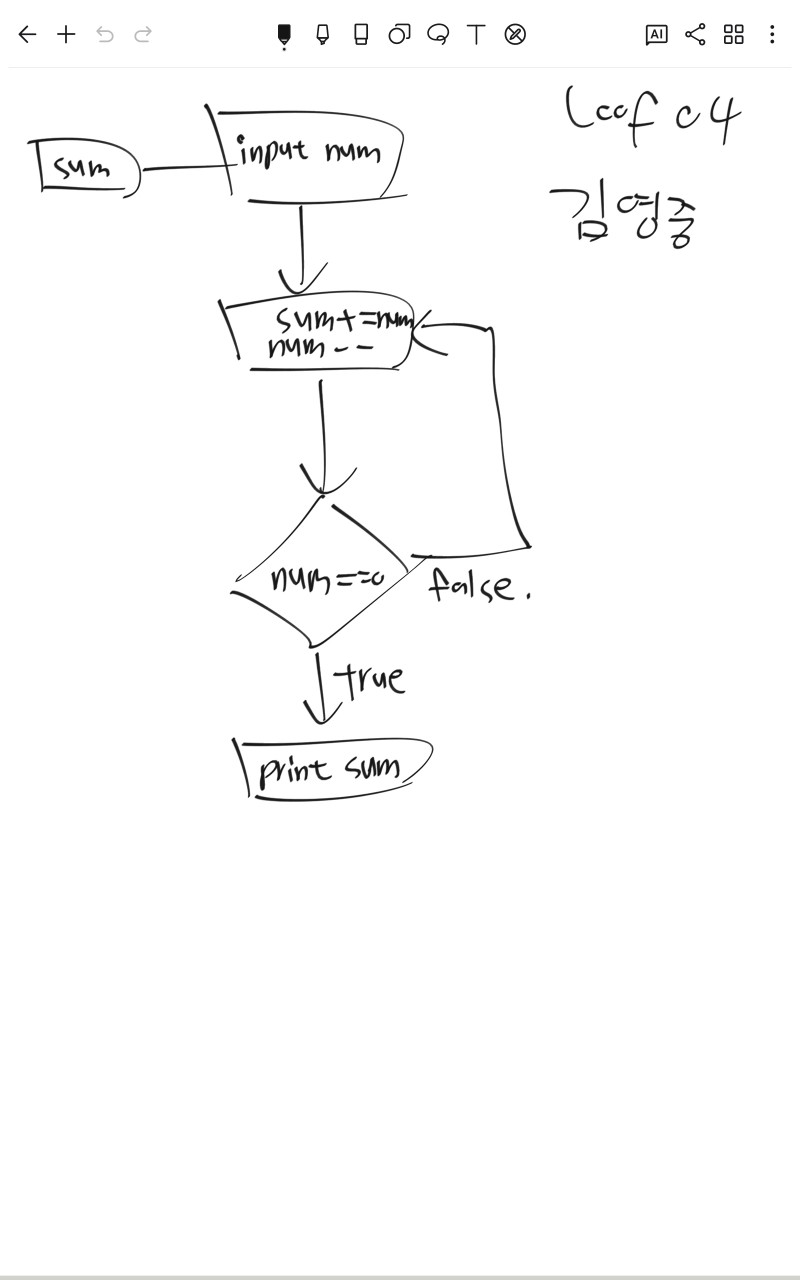 Loof 04
김영중
sum
input num
sum+=num
num--
num==0
false.
true
print sum